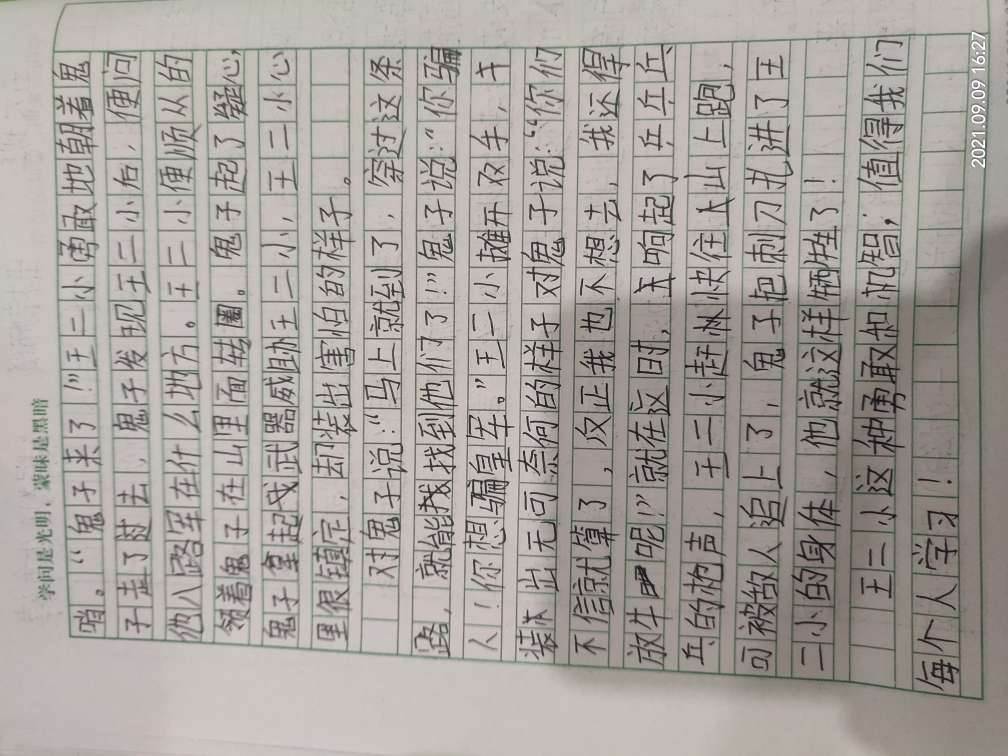 学问是光明，蒙昧是黑暗
哨。“鬼子来了!”王二小勇敢地朝着鬼
子走了过去，鬼子发现王二小后，便问
他八路军在什么地方。王二小便顺从的
领着鬼子在山里面转圈。鬼子起了疑心，
鬼子拿起武器威胁王二小，王二小心
里很镇定，却装出害怕的样子。
对鬼子说：“马上就到了，穿过这条
路，就能找到他们了!”鬼子说：“你骗
人!你想骗皇军。”王二小摊开双手，
装出无可奈何的样子对鬼子说：“你们
不信就算了，反正我也不想去，我还得
放牛呢!”就在这时，响起了乒乒乓
乓的枪声，王二小赶快往大山上跑，
可被敌人追上了，鬼子把刺刀扎进了王
二小的身体，他就这样牺牲了!
王二小这种勇敢和机智，值得我们
每个人学习!
2021.09.09 16:27